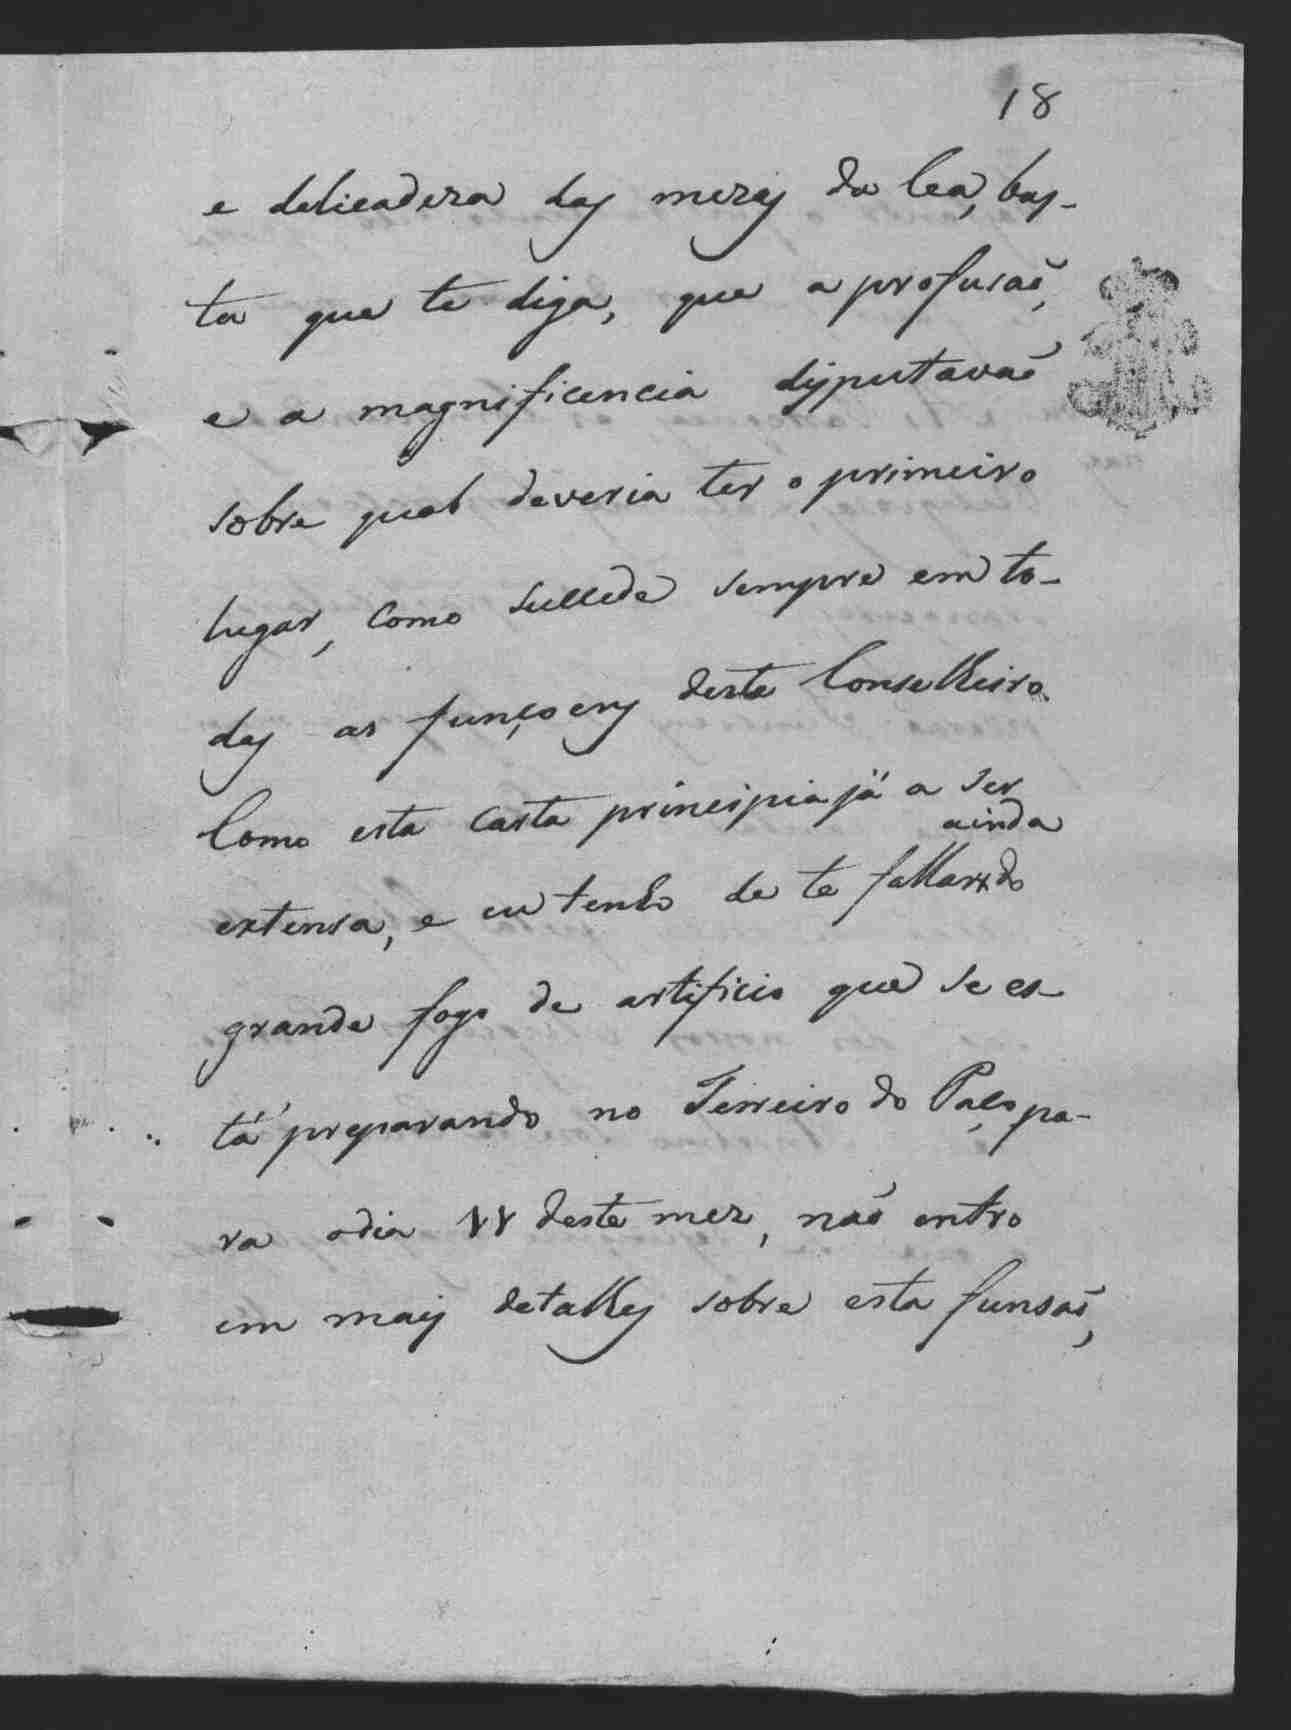 18
e delicadeza das mezas da Cea, bas-
ta que te diga, que a profusaõ,
e a magnificencia disputavaõ
sobre qual deveria ter o primeiro
lugar, como succede sempre em to-
das as funçoens deste Conselheiro
Como esta carta principia já a ser
ainda
extensa, e eu tenho de te fallar do
grande fogo de artificio que se es-
tá preparando no Terreiro do Paço pa-
ra o dia deste mez, naõ entro
em mais detalhes sobre esta funsaõ,